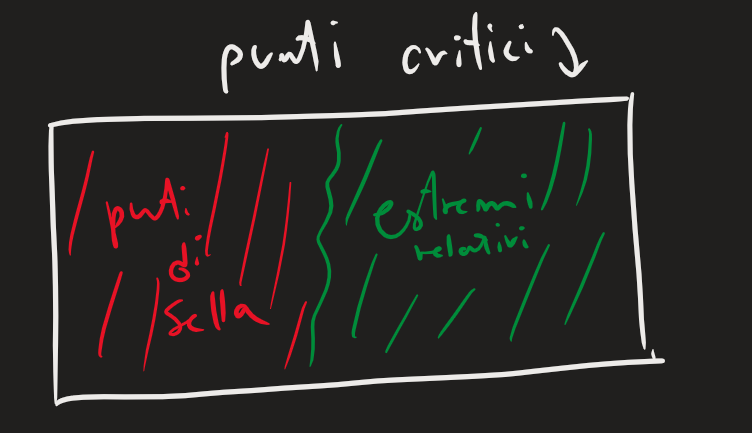 punti critici
punti
di
sella
estremi
relativi